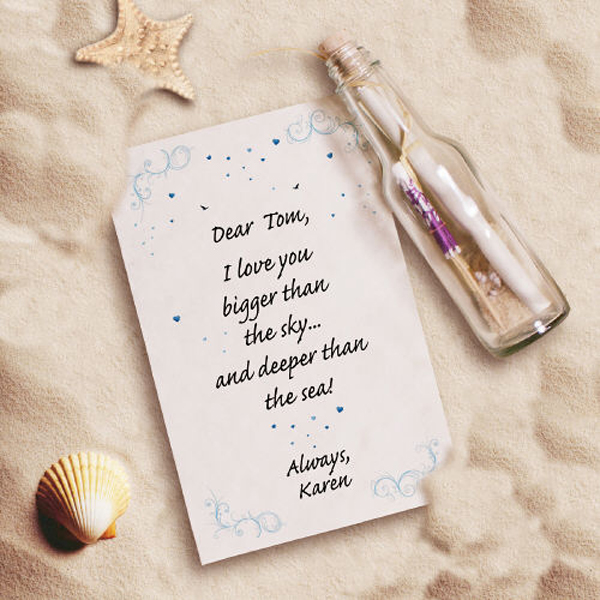 Dear Tom,
I love you
bigger than
the sky...
and deeper than
the sea!
Always,
Karen